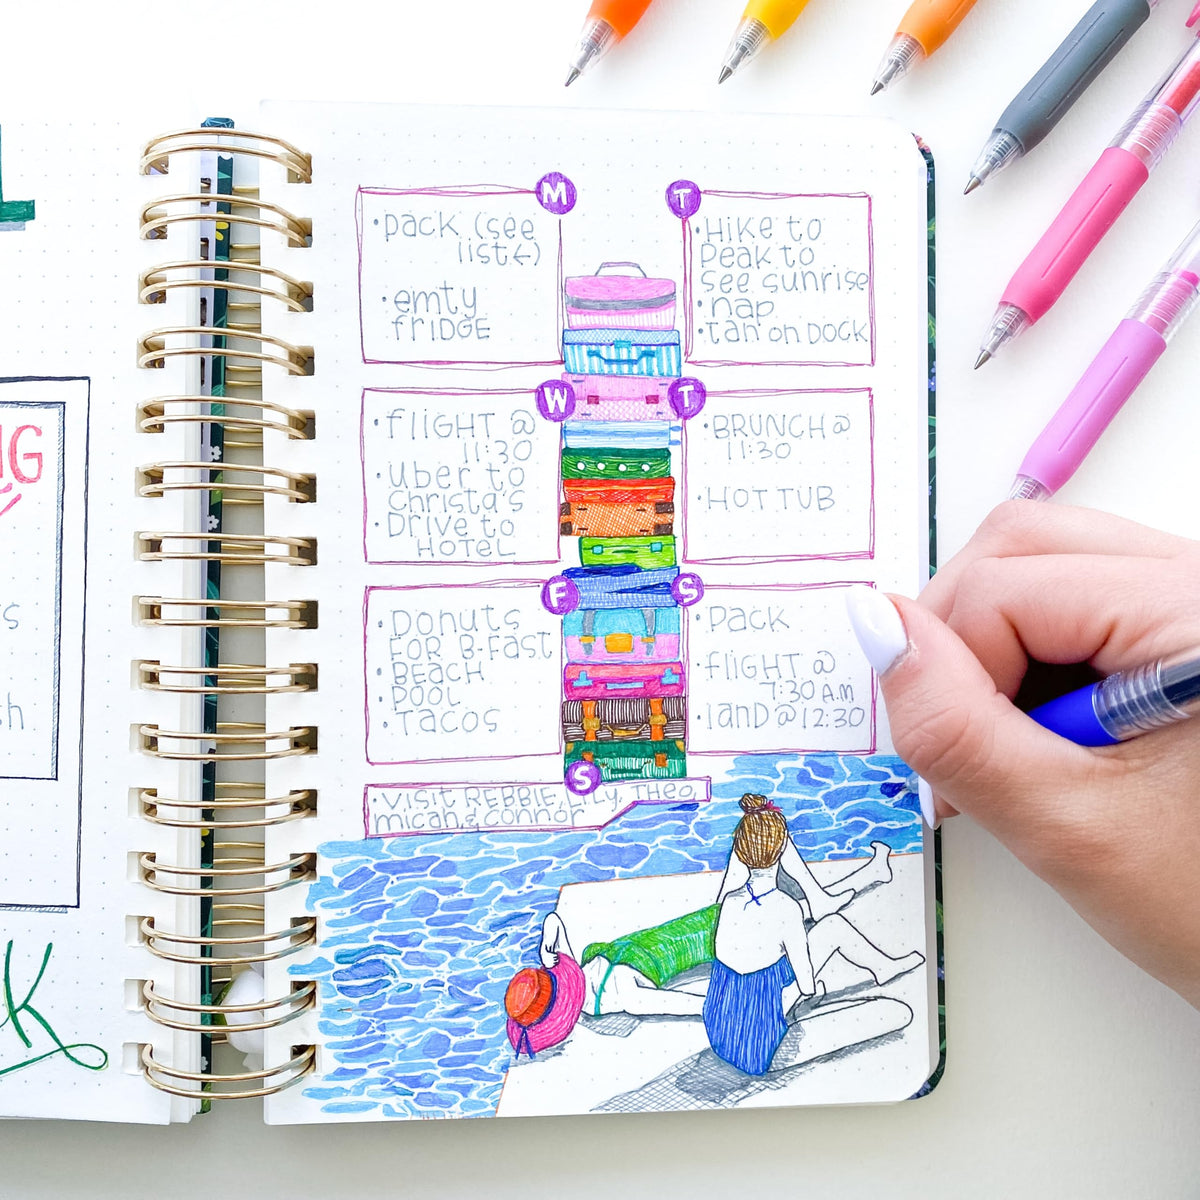 L
NG
s
ch
K
M
• pack (see
list←)
• emty
fridge
T
• Hike to
peak to
see sunrise
• nap
• tan on dock
W
• flight @
11:30
• Uber to
Christa's
• Drive to
Hotel
T
• Brunch @
11:30
• Hot tub
F
• Donuts
for b-fast
• Beach
• pool
• Tacos
S
• pack
• flight @
7:30 a.m
• land @ 12:30
S
• visit Rebbie, Lily, Theo,
micah, & connor